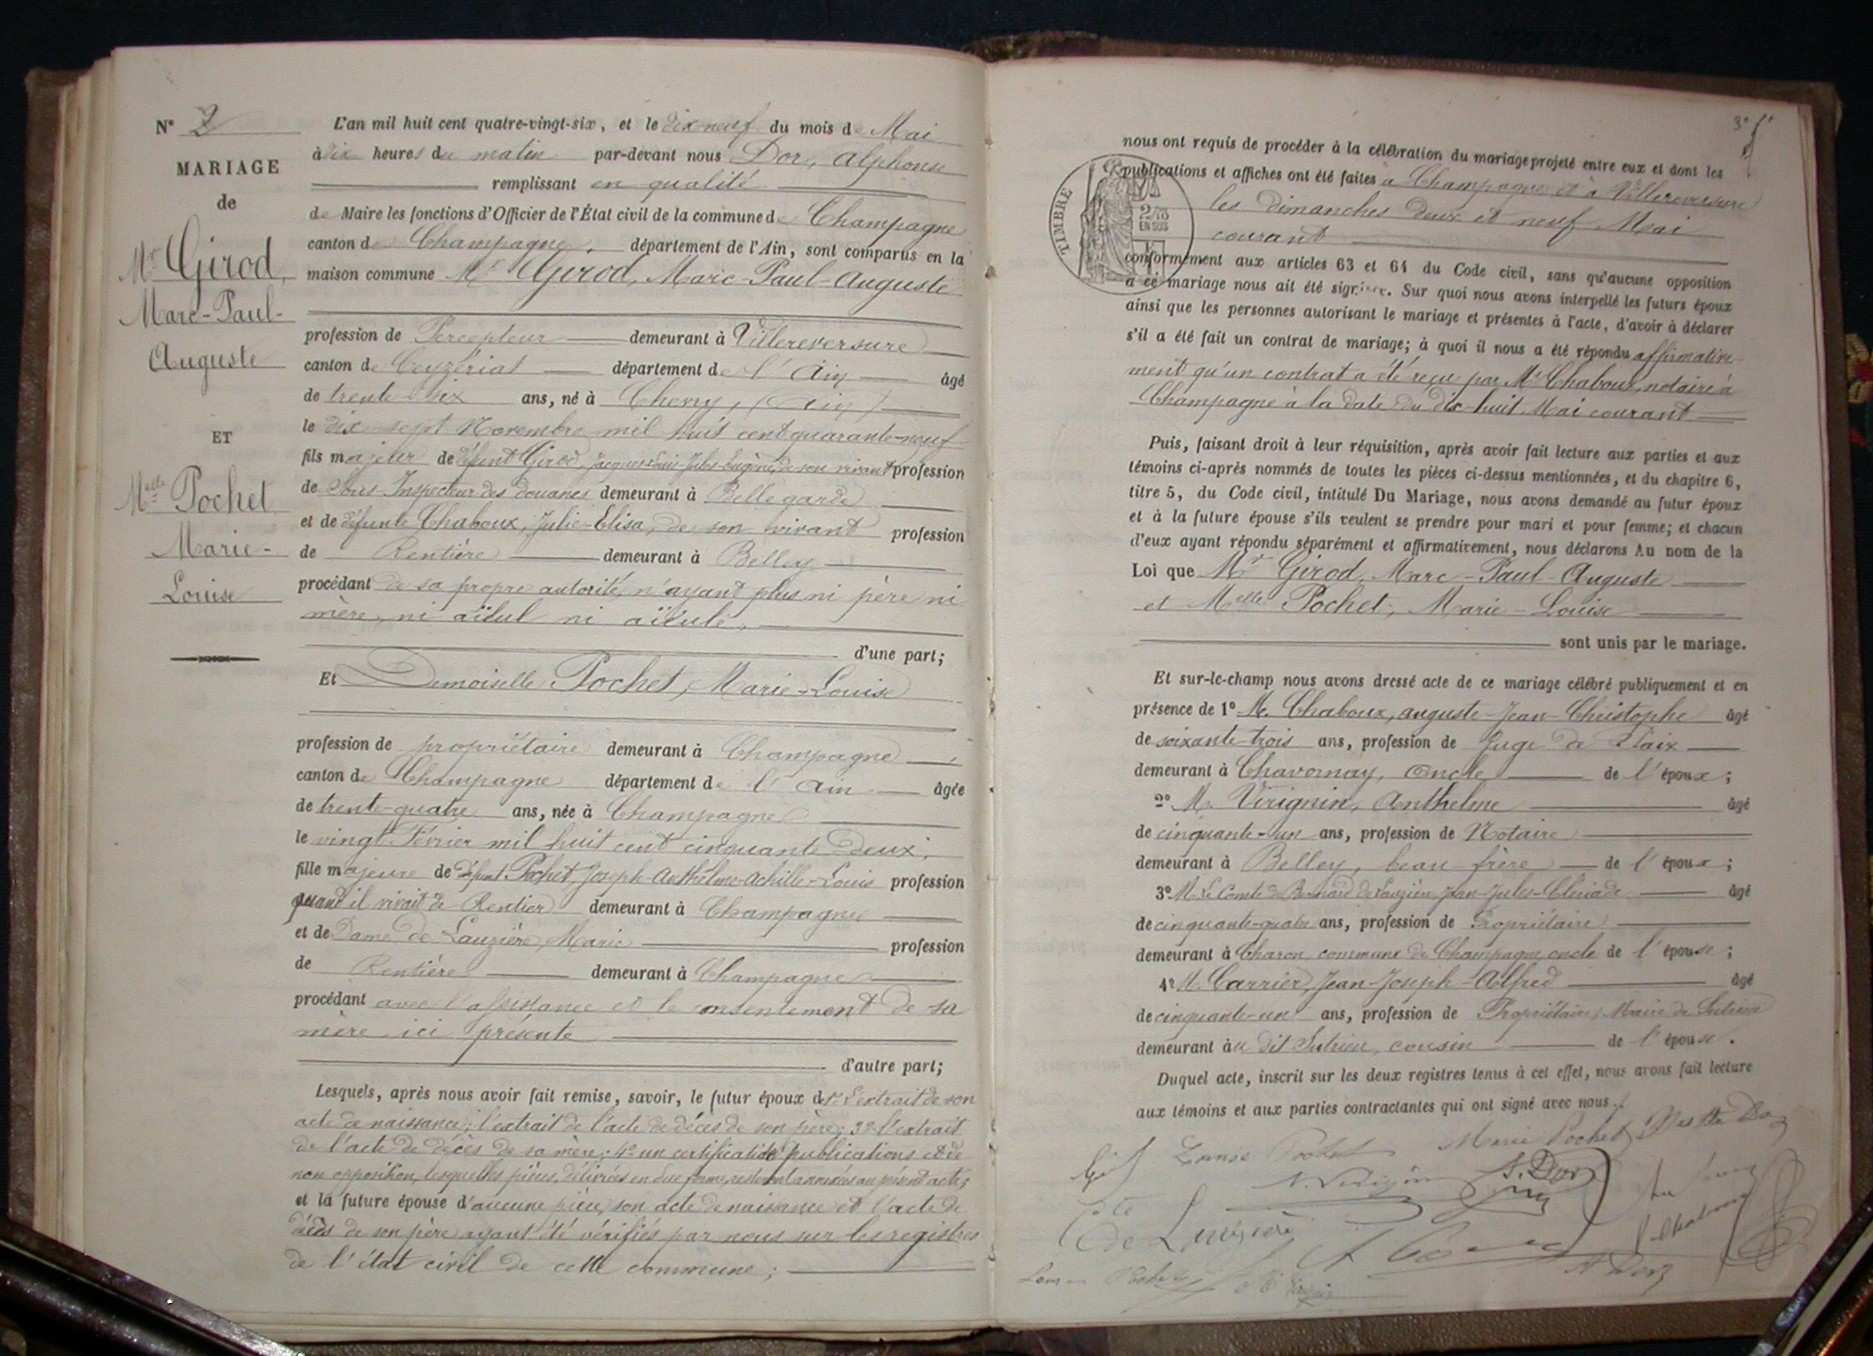 N° 2
MARIAGE
de
Mr Girod,
Marc-Paul-
Auguste
ET
Melle Pochet
Marie-
Louise
L'an mil huit cent quatre-vingt-six, et le dix-neuf du mois de Mai
à dix heures du matin par-devant nous Dor, Alphonse
remplissant en qualité
de Maire les fonctions d'Officier de l'État civil de la commune de Champagne
canton de Champagne, département de l'Ain, sont comparus en la
maison commune Mr Girod, Marc-Paul-Auguste
profession de Percepteur demeurant à Villereversure
canton de Ceyzériat département de l'Ain âgé
de trente-six ans, né à Cheny, (Ain)
le dix-sept Novembre mil huit cent quarante-neuf
fils majeur de défunt Girod, Jules-Eugène, de son vivant profession
de Sous-Inspecteur des douanes demeurant à Bellegarde
et de défunte Chaboux, Julie-Elisa, de son vivant profession
de Rentière demeurant à Belley
procédant de sa propre autorité, n'ayant plus ni père ni
mère, ni aïeul ni aïeule,
d'une part;
Et Demoiselle Pochet, Marie-Louise
profession de propriétaire demeurant à Champagne
canton de Champagne département de l'Ain âgée
de trente-quatre ans, née à Champagne
le vingt Février mil huit cent cinquante deux,
fille majeure de défunt Pochet, Joseph-Anthelme-Achille-Louis profession
quand il vivait de Rentier demeurant à Champagne
et de Dame de Lauzière, Marie profession
de Rentière demeurant à Champagne
procédant avec l'assistance et le consentement de sa
mère ici présente
d'autre part;
Lesquels, après nous avoir fait remise, savoir, le futur époux de 1° l'extrait de son
acte de naissance; l'extrait de l'acte de décès de son père; 3° l'extrait
de l'acte de décès de sa mère; 4° un certificat de publications et de
non opposition, lesquelles pièces, délivrées en due forme, resteront annexées au présent acte;
et la future épouse d'aucune pièce, son acte de naissance et l'acte de
décès de son père ayant été vérifiés par nous sur les registres
de l'état civil de cette commune;
nous ont requis de procéder à la célébration du mariage projeté entre eux et dont les
publications et affiches ont été faites à Champagne et à Villereversure
les dimanches deux et neuf Mai
courant
TIMBRE
EN SUS
conformément aux articles 63 et 64 du Code civil, sans qu'aucune opposition
à ce mariage nous ait été signifiée. Sur quoi nous avons interpellé les futurs époux
ainsi que les personnes autorisant le mariage et présentes à l'acte, d'avoir à déclarer
s'il a été fait un contrat de mariage; à quoi il nous a été répondu affirmative-
ment qu'un contrat a été reçu par Me Chaboux, notaire à
Champagne à la date du dix-huit Mai courant
Puis, faisant droit à leur réquisition, après avoir fait lecture aux parties et aux
témoins ci-après nommés de toutes les pièces ci-dessus mentionnées, et du chapitre 6,
titre 5, du Code civil, intitulé Du Mariage, nous avons demandé au futur époux
et à la future épouse s'ils veulent se prendre pour mari et pour femme; et chacun
d'eux ayant répondu séparément et affirmativement, nous déclarons Au nom de la
Loi que Mr Girod, Marc-Paul-Auguste
et Melle Pochet, Marie-Louise
sont unis par le mariage.
Et sur-le-champ nous avons dressé acte de ce mariage célébré publiquement et en
présence de 1° M. Chaboux, auguste-Jean-Christophe âgé
de soixante-trois ans, profession de Juge de Paix
demeurant à Chavornay, oncle de l'époux;
2° M. Virignin, Anthelme âgé
de cinquante-un ans, profession de Notaire
demeurant à Belley, beau frère de l'époux;
3° M. Le Comte de Lauzière Jean-Jules âgé
de cinquante-quatre ans, profession de Propriétaire
demeurant à Charon, commune de Champagne oncle de l'épouse;
4° M. Carrier, Jean-Joseph-Alfred âgé
de cinquante-un ans, profession de Propriétaire, Maire de Sutrieu
demeurant au dit Sutrieu, cousin de l'épouse.
Duquel acte, inscrit sur les deux registres tenus à cet effet, nous avons fait lecture
aux témoins et aux parties contractantes qui ont signé avec nous.
Louise Pochet Marie Pochet
A. Dor
de Lauzière